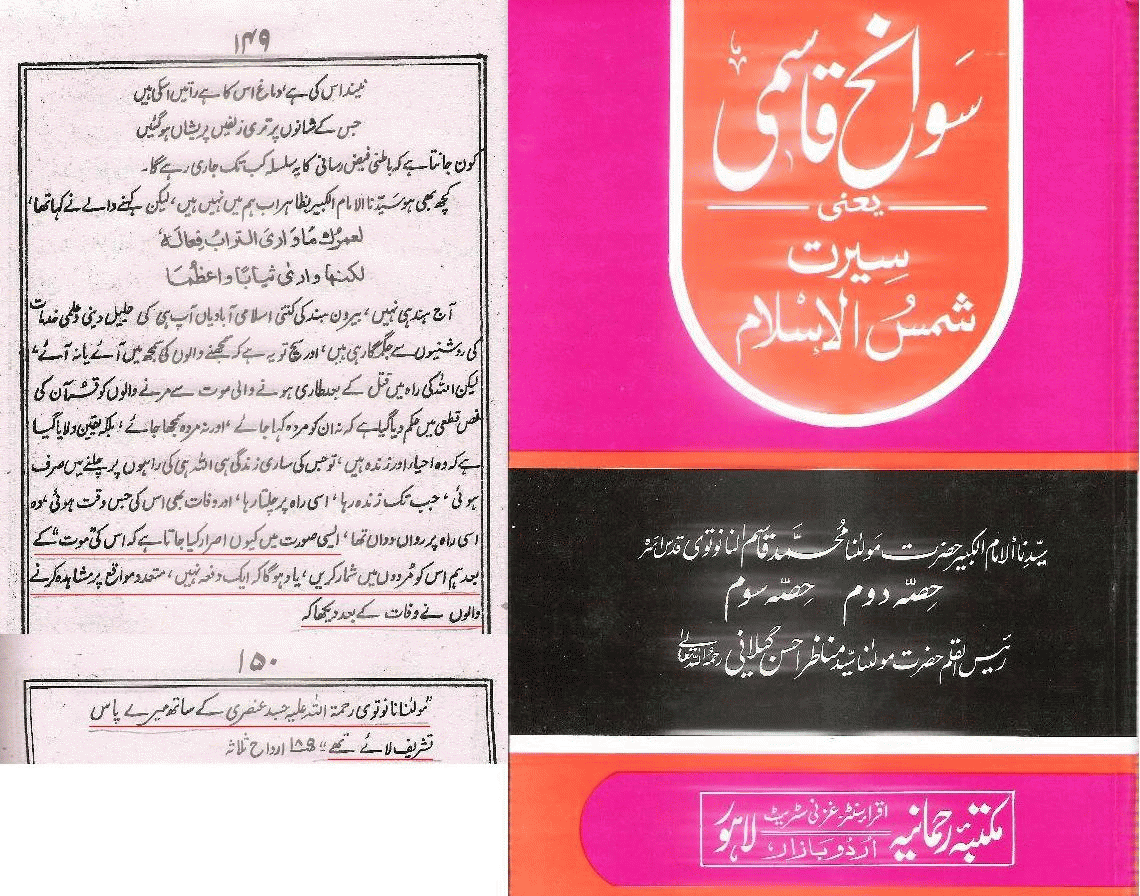 ۱۴۹
نیند اس کی ہے ، داغ اس کا ہے راتیں اسکی ہیں
جس کے شانوں پر تری زلفیں پریشاں ہوگئیں
کون جانتا ہے کہ باطنی فیض رسانی کا یہ سلسلہ کب تک جاری رہے گا۔
کچھ بھی ہو سیّدنا الامام الکبیر بظاہر اب ہم میں نہیں ہیں، لیکن کہنے والے نے کہا تھا،
لعمرك ما وارى التراب فعاله
لكنها وارى ثيابا واعظما
آج ہند ہی نہیں، بیرون ہند کی کتنی اسلامی آبادیاں آپ ہی کی جلیل دینی و علمی خدمات
کی روشنیوں سے جگمگا رہی ہیں، اور سچ تو یہ ہے کہ سمجھنے والوں کی سمجھ میں آئے یا نہ آئے،
لیکن اللہ کی راہ میں قتل کے بعد طاری ہونے والی موت سے مرنے والوں کو قرآن کی
نص قطعی میں حکم دیا گیا ہے کہ نہ ان کو مردہ کہا جائے، اور نہ مردہ سمجھا جائے، بلکہ یقین دلایا گیا
ہے کہ وہ احیاء اور زندہ ہیں، تو جس کی ساری زندگی ہی اللہ ہی کی راہوں پر چلنے میں صرف
ہوئی، جب تک زندہ رہا، اسی راہ پر چلتا رہا، اور وفات بھی اس کی جس وقت ہوئی، وہ
اسی راہ پر رواں دواں تھا، ایسی صورت میں کیوں اصرار کیا جاتا ہے کہ اس کی "موت" کے
بعد ہم اس کو مُردوں میں شمار کریں، یاد ہوگا کہ ایک دفعہ نہیں، متعدد مواقع پر مشاہدہ کرنے
والوں نے وفات کے بعد دیکھا کہ
۱۵۰
"مولٰنا نانوتوی رحمۃ اللہ علیہ جسد عنصری کے ساتھ میرے پاس
تشریف لائے تھے" ارواح ثلاثہ
سوانح قاسمی
یعنی
سیرت
شمسُ الاِسلام
سیّدنا الامام الکبیر حضرت مَولٰنا مُحمّد قاسم النانوتوی قدس سرہ
حِصّہ دوم حِصّہ سوم
رئیس القلم حضرت مولٰنا سیّد مناظر احسن گیلانی رحمۃ اللہ تعالیٰ
مکتبۂ رحمانیہ
اقراء سنٹر۔ غزنی سٹریٹ
اُردُو بازار
لاہور